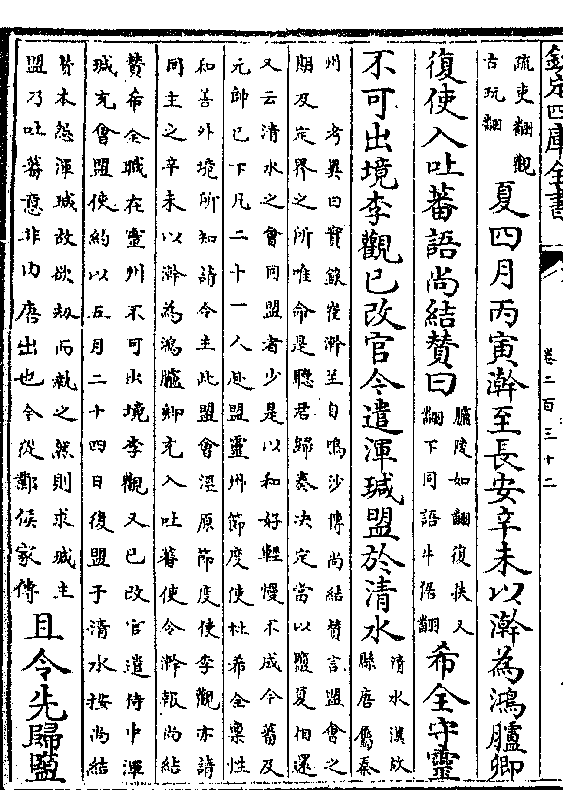 欽定四庫全書
卷二百三十二
疏吏翻觀
古玩翻
夏四月丙寅澣至長安辛未以澣為鴻臚卿
復使入吐蕃語尚結贊曰
臚陵如翻復扶又
翻下同語牛倨翻
希全守靈
不可出境李觀已改官今遣渾瑊盟於清水
清水漢故
縣唐屬秦
州 考異曰實錄崔澣至自鳴沙傳尚結贊言盟會之
期及定界之所唯命是聽君歸奏決定當以鹽夏相還
又云清水之會同盟者少是以和好輕慢不成今蕃及
元帥已下凡二十一人赴盟靈州節度使杜希全稟性
和善外境所知請令主此盟會涇原節度使李觀亦請
同主之辛未以澣為鴻臚卿充入吐蕃使令澣報尚結
贊希全職在靈州不可出境李觀又已改官遣侍中渾
瑊充會盟使約以五月二十四日復盟于清水按尚結
贊本怨渾瑊故欲劫而執之然則求瑊主
盟乃吐蕃意非由唐出也今從鄴侯家傳
且令先歸鹽